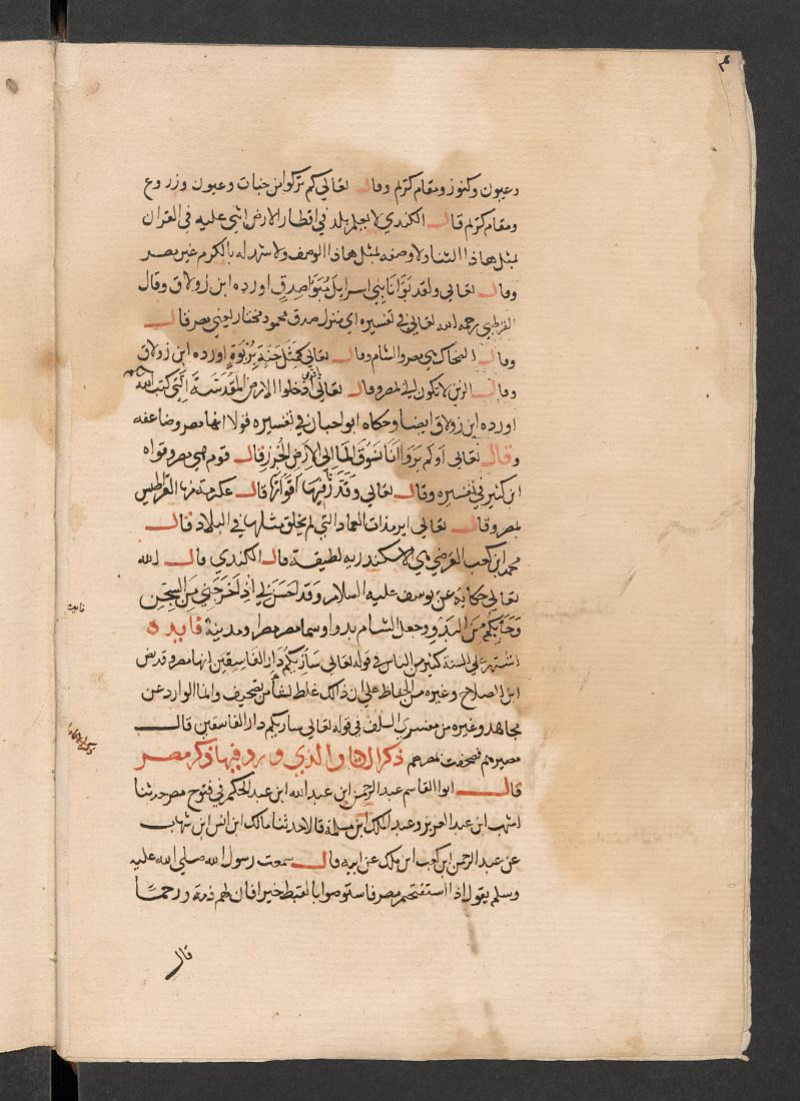 ٤
وعيون وكنوز ومقام كريم وقال تعالي كم تركوا من جنات وعيون وزروع
ومقام كريم قال الكندي لا يعلم بلد في اقطار الارض اثني عليه في القران
بمثل هاذا الثنا ولا وصفه بمثل هاذا الوصف ولا شهد له بالكرم غير مصر
وقال تعالي ولقد بَوَّانَا بني اسرايل مُبَوَّا صِدقٍ اورده ابن زولاق وقال
القرطبي رحمه الله تعالي في تفسيره اي منزل صدق محمود مختار يعني مصر قال
وقال الضحاك هي مصر والشام وقال تعالي كمثل جَنَةٍ بِرَبْوَةٍ اورده ابن زولاق
وقال الربي لا تكون الا بمصر وقال تعالي ادخلوا الارض المقَدَّسَةَ التي كتب الله
اورده ابن زولاق ايضا وحكاه ابو احبان في تفسيره قولا انها مصر وضاعفه
وقال تعالي اوَلَم يَروا انَّا نَسُوقُ الما الي الارضِ الجُرزِ قال قوم هي مصر وقواه
ابن كثير في تفسيره وقال تعالي وقَدَّر فيها اَقوَاتهَا قال عكرمة منها القراطيس
بمصر وقال تعالي ارم ذات العماد التي لم يخلق مثلها في البلاد قال
محمد ابن كعب القرضي هي الاسكندريه لطيفة قال الكندي قال الله
تعالي حكاية عن يوسف عليه السلام وقد احسَنَ بي اذ اخرَجَني مِنَ السجن
وَجَابِكُم منَ البَدو وجعل الشام بدوا وسما مصر مصرا ومدينة فايده
اشتهر علي السنة كثير من الناس في قوله تعالي سَاُرِيكُم دَار الفَاسِقين انها مصر وقد نص
ابن الصلاح وغيره من الحفاظ علي ان ذالك غلط نشا من تصحيف وانما الوارد عن
مجاهد وغيره من مفسرين السلف في قوله تعالي ساريكم دار الفاسقين قال
مصيرهم فصحفت بمصرهم ذكر الاثار الذي ورد فيها ذكر مصر
قال ابوا القاسم عبد الرحمن ابن عبد الله ابن عبد الحكم في فتوح مصر حدثنا
اشهب ابن عبد العزيز وعبد الملك ابن مسلمة قالا حدثنا مالك ابن انس ابن شهاب
عن عبد الرحمن ابن كعب ابن ملك عن ابيه قال سمعت رسول الله صلي الله عليه
وسلم يقول اذا استفتحتم مصر فاستوصوا بالقبط خيرا فان لهم ذمة ورحمًا
قال
فايده